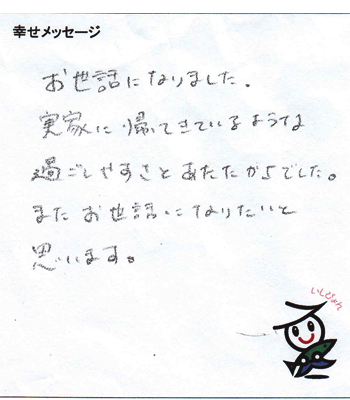 幸せメッセージ
お世話になりました.
実家に帰ってきているような
過ごしやすさとあたたかさでした。
またお世話になりたいと
思います。
いしぴょん